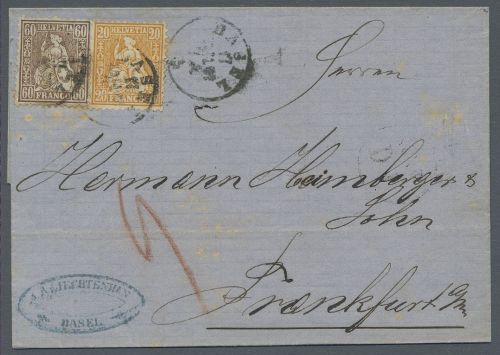 60 HELVETIA 60
60 FRANCO 60
20 HELVETIA 20
20 FRANCO 20
BASEL
Herren
Hermann Heimberger &
Sohn
Frankfurt a/m
BASEL